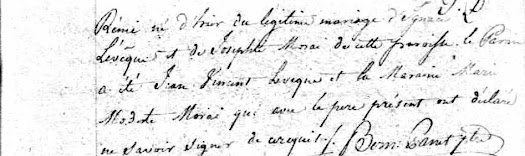 Rémi né d'hier du légitime mariage d'Ignace
Lévêque et de Josephte Morai de cette paroisse le Parain
a été Jean Vincent Leveque et la Maraine Marie
Modeste Morai qui avec le pere présent ont déclaré
ne savoir signer de ce requis /. Bern. Panet ptre